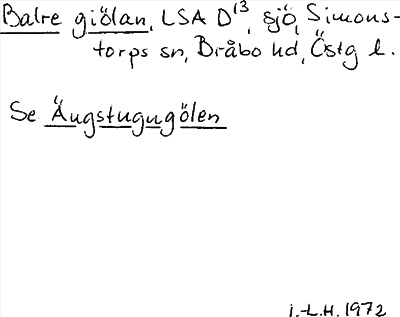 Balre giölan, LSA D¹³, sjö, Simons-
torps sn, Bråbo hd, Östg l.
Se Ängstugugölen
i.-L.H. 1972